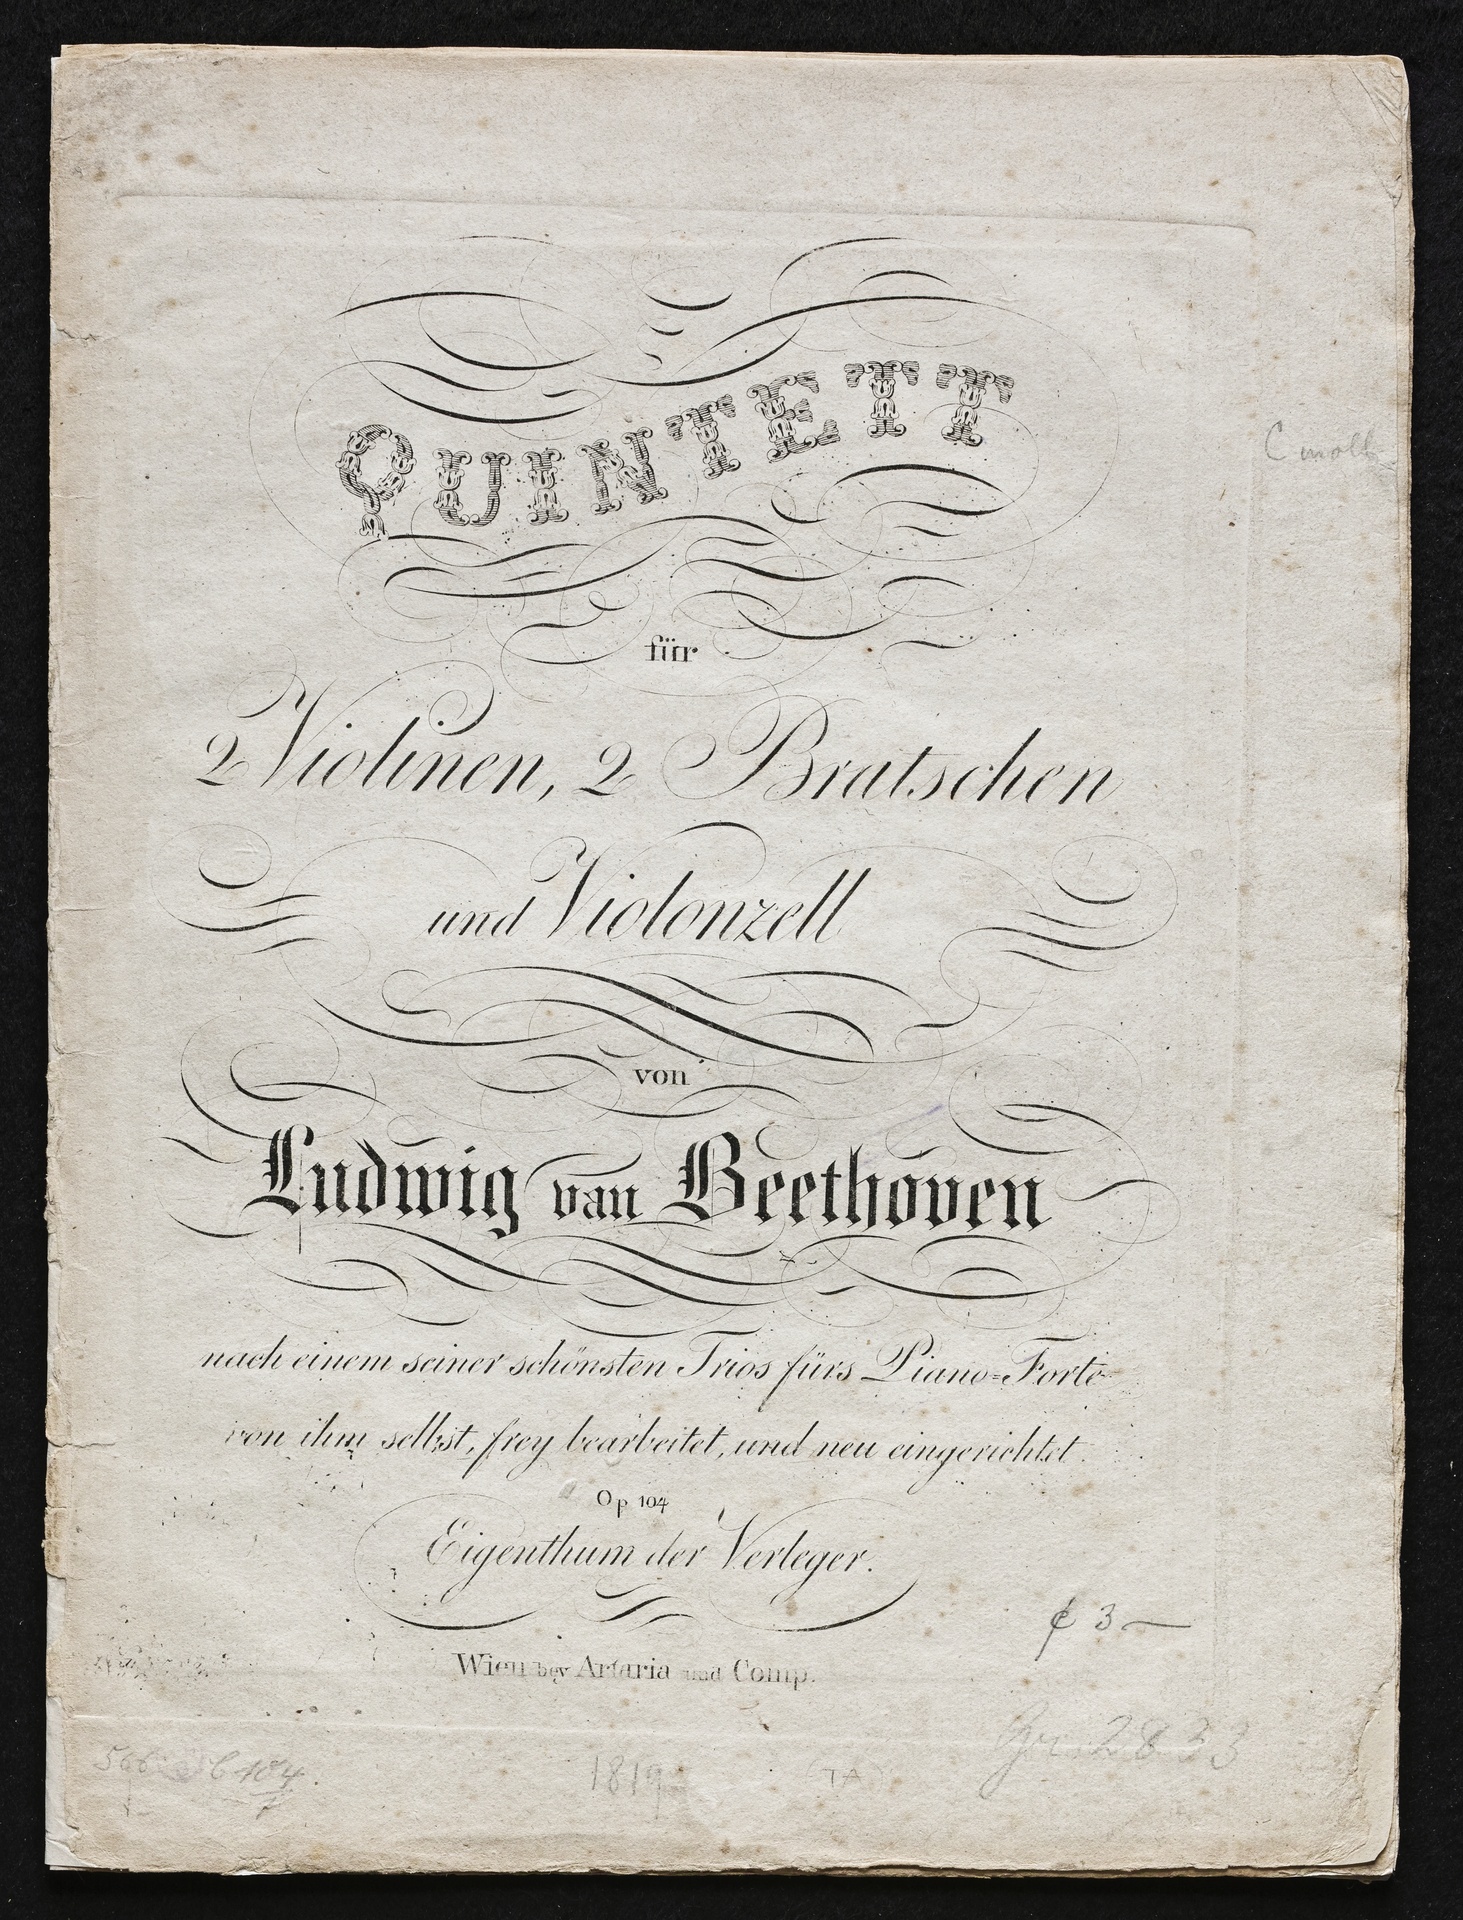 QUINTETT
C moll
für
2 Violinen, 2 Bratschen
und Violonzell
von
Ludwig van Beethoven
nach einem seiner schönsten Trios fürs Piano=Forte
von ihm selbst, frey bearbeitet, und neu eingerichtet.
Op 104
Eigenthum der Verleger.
3
Wien bey Artaria und Comp.
2833
104.
1819
(TA)